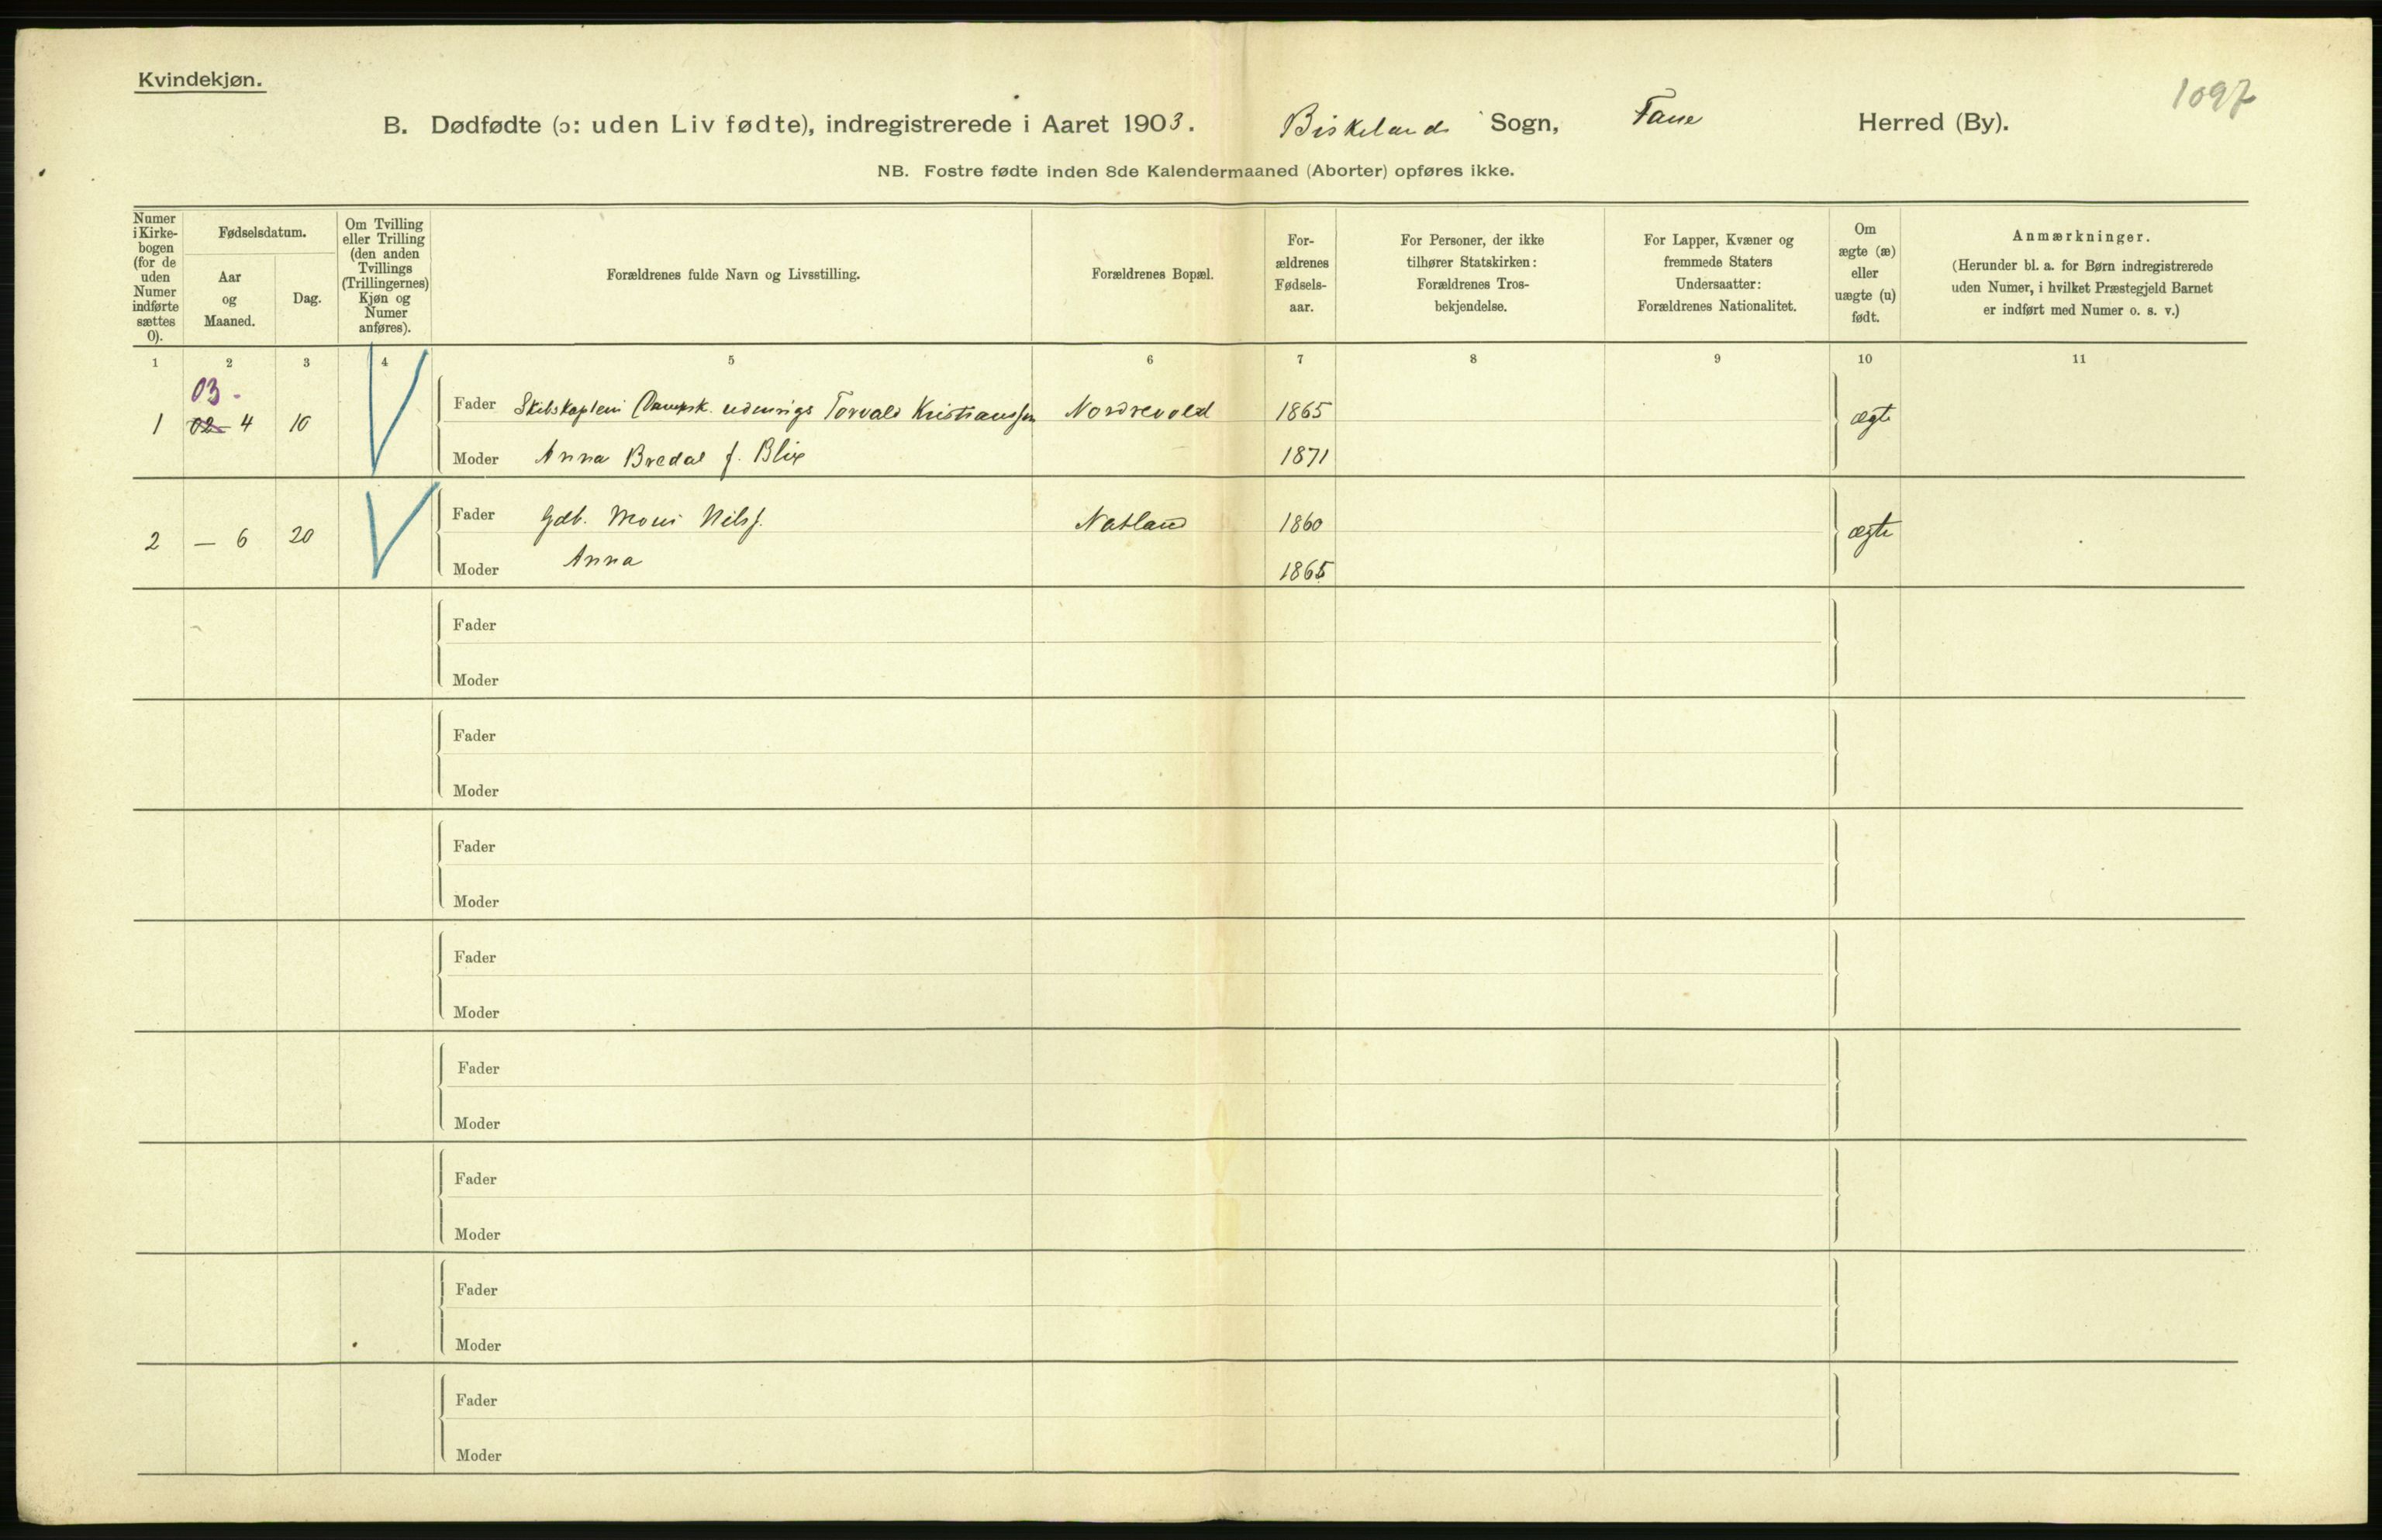 Kvindekjøn.
1097
B. Dødfødte (ɔ: uden Liv fødte), indregistrerede i Aaret 1903. Birkelands Sogn, Fane Herred (By).
NB. Fostre fødte inden 8de Kalendermaaned (Aborter) opføres ikke.
Numer i Kirke- bogen (for de uden Numer indførte sættes 0).
Fødselsdatum.
Aar og Maaned.
Dag.
Om Tvilling eller Trilling (den anden Tvillings (Trillingernes) Kjøn og Numer anføres).
Forældrenes fulde Navn og Livsstilling.
Forældrenes Bopæl.
For- ældrenes Fødsels- aar.
For Personer, der ikke tilhører Statskirken: Forældrenes Tros- bekjendelse.
For Lapper, Kvæner og fremmede Staters Undersaatter: Forældrenes Nationalitet.
Om ægte (æ) eller uægte (u) født.
Anmærkninger.
(Herunder bl. a. for Børn indregistrerede uden Numer, i hvilket Præstegjeld Barnet er indført med Numer o. s. v.)
1 2 3 4 5 6 7 8 9 10 11
03.
1 02 4 10 Fader Skibskaptein (Dampsk. udenrigs Torvald Kristianssen Nordrevold 1865 ægte
Moder Anna Bredal f. Blix 1871
2 — 6 20 Fader Gdb. Mons Nilss. Natland 1860 ægte
Moder Anna 1865
Fader
Moder
Fader
Moder
Fader
Moder
Fader
Moder
Fader
Moder
Fader
Moder
Fader
Moder
Fader
Moder